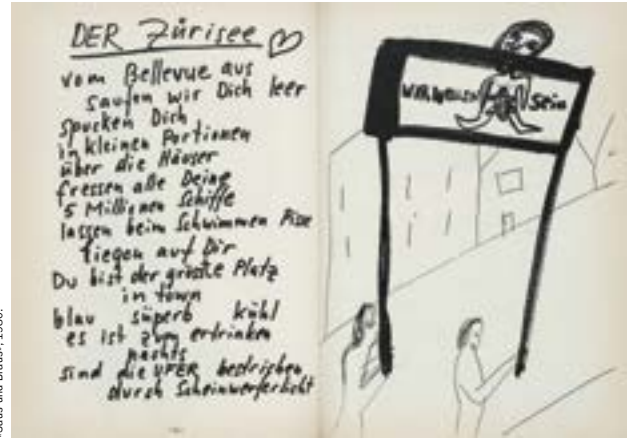 DER Zürisee
vom Bellevue aus
saufen wir Dich leer
spucken Dich
in kleinen Portionen
über die Häuser
fressen alle Deine
5 Millionen Schiffe
lassen beim Schwimmen Pisse
liegen auf Dir
Du bist der grösste Platz
in town
blau süperb kühl
es ist zum ertrinken
nachts
sind die UFER bestrichen
durch Scheinwerferlicht
WIR WOLLEN sein